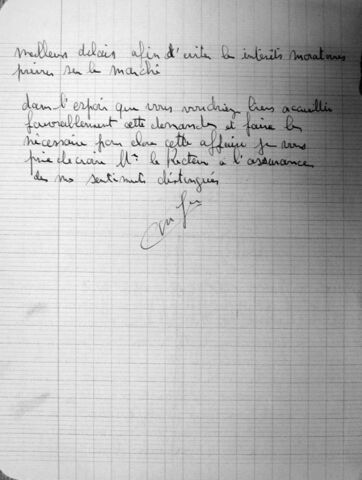 meilleurs délais afin d'eviter les intérêts moratoires
prévus sur le marché
dans l'espoir que vous voudriez bien accueillir
favorablement cette demande et faire le
nécessaire pour clore cette affaire je vous
prie de croire Mr le Recteur à l'assurance
de mes sentiments distingués